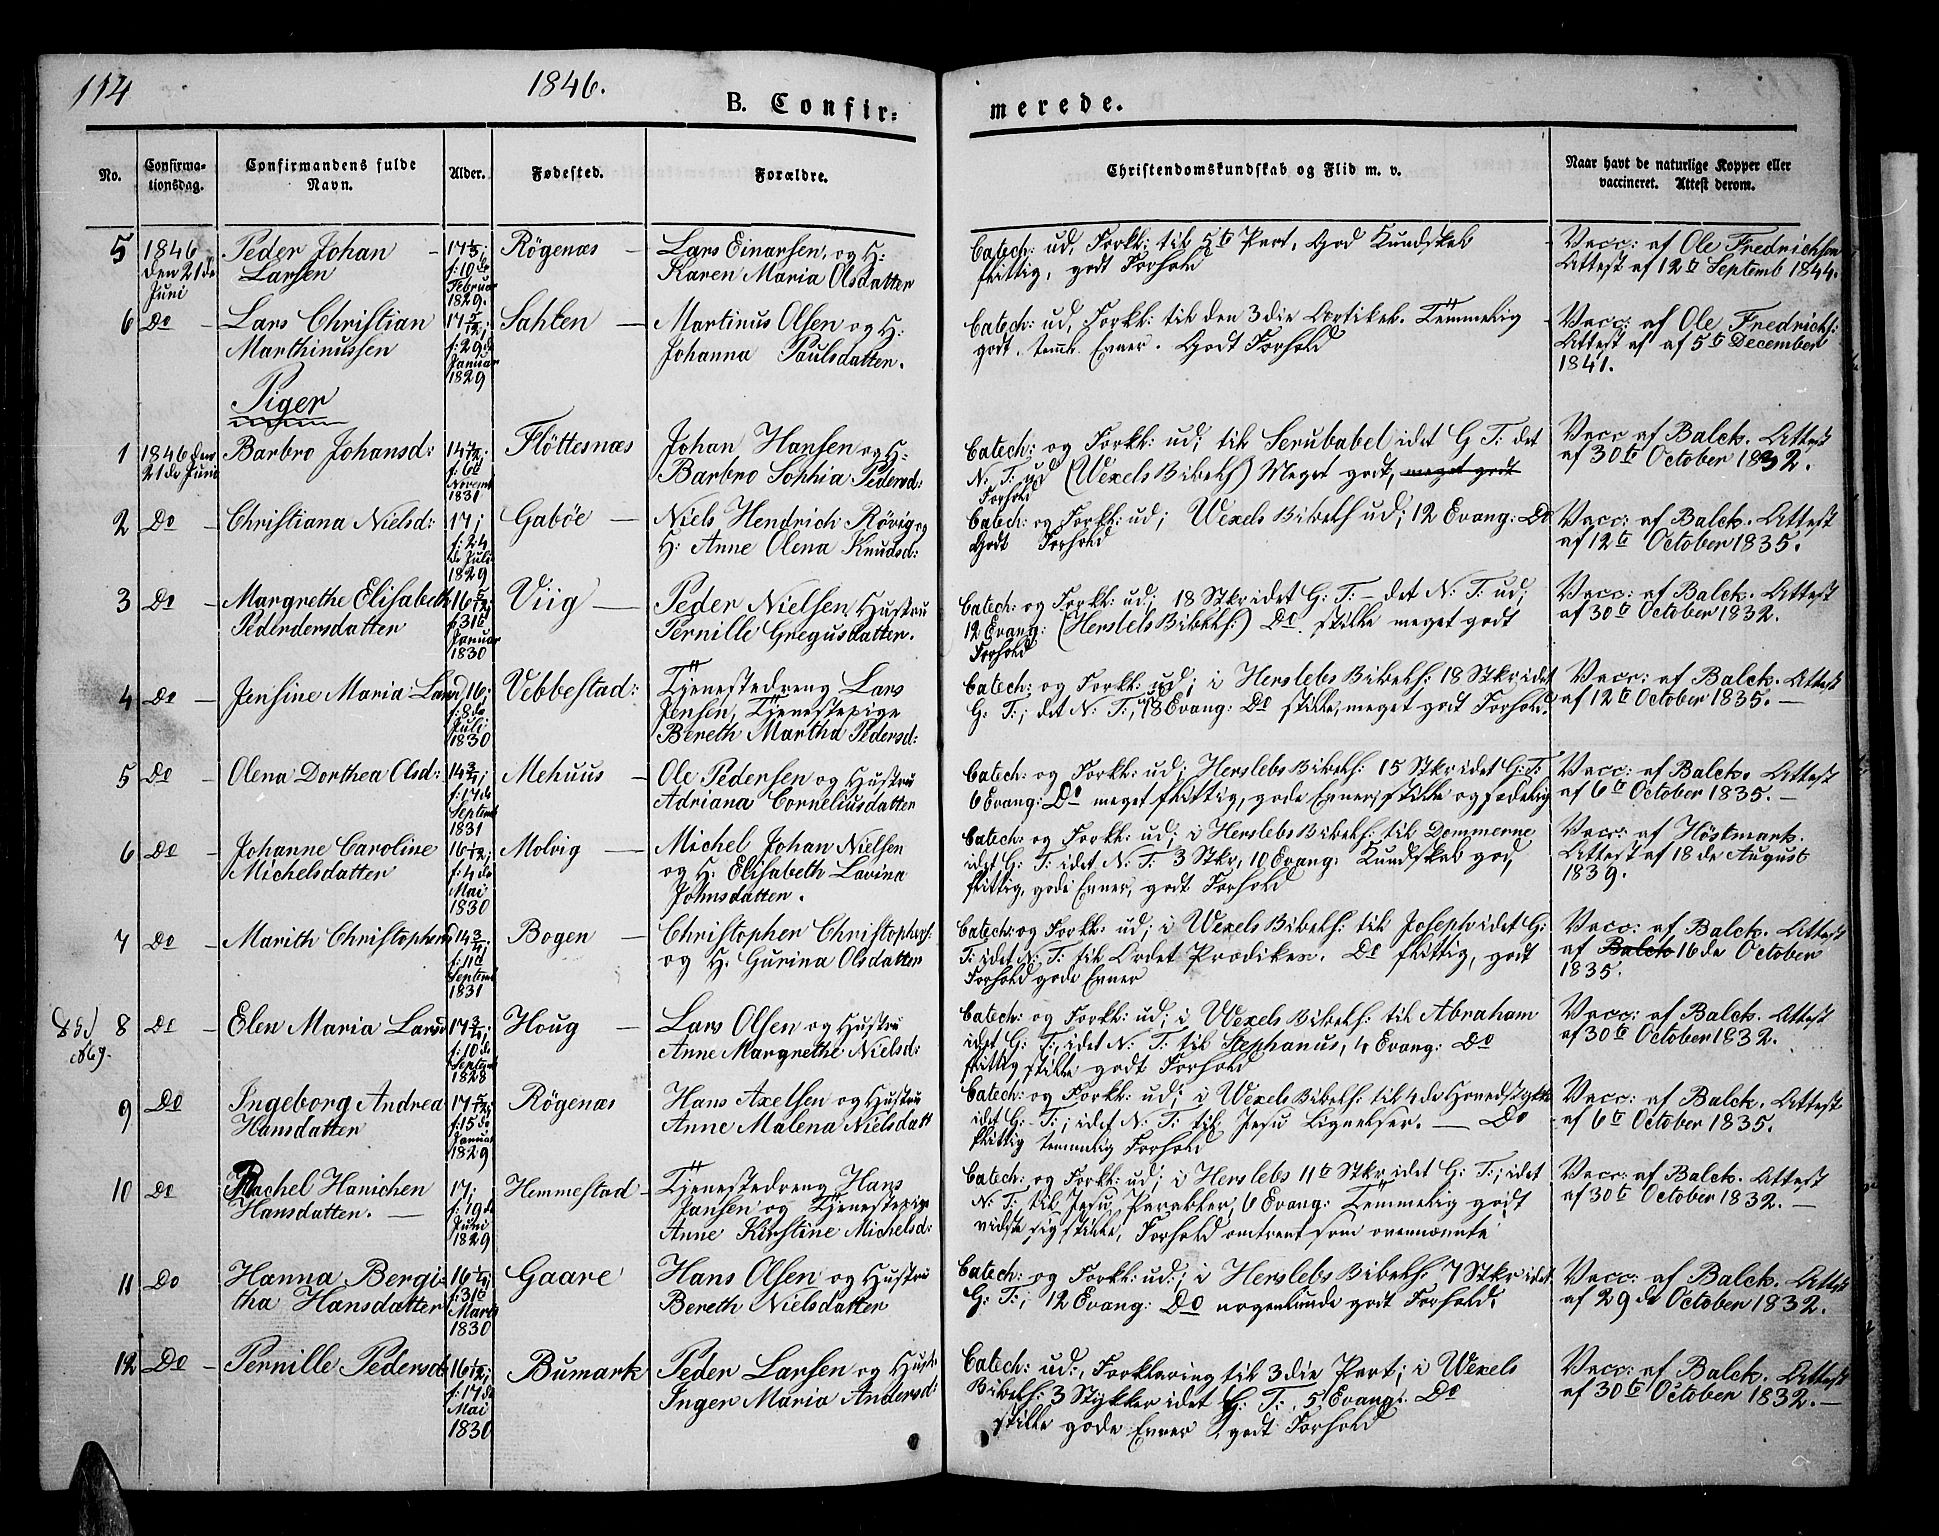 114
1846.
B. Confir=
merede.
No.
Confirma-
tionsdag.
Confirmandens fulde
Navn.
Alder.
Fødested.
Forældre.
Christendomskundskab og Flid m. v.
Naar havt de naturlige Kopper eller
vaccineret. Attest derom.
5 1846 Peder Johan - Røgenæs - Lars Einarsen, og H:
den 21de Larsen f: 10de Karen Maria Olsdatter
Juni Februar
1829.
Catech: ud, Forkl: til 5te Part, God Kundskab
flittig, godt Forhold
Vacc: af Ole Fredrichsen
Attest af 12te Septemb 1844.
6 Do - Lars Christian 17 5/12; Sahten - Martinus Olsen og H:
Marthinussen f: 29de Johanna Paulsdatter.
Januar
1829
Catech: ud, Forkl: til den 3die Artikel. Temmelig
godt. teml. Evner. Godt Forhold
Vacc: af Ole Fredrichs:
Attest af af 5te December
1841.
Piger
1 1846 den Barbro Johansd: 14 7/12; Fløttesnæs Johan Hansen og H:
21de Juni f: 6te Barbro Sophia Pedersd:
Novemb
1831
Catech: og Forkl: ud; til Serubabel i det G T: det
N: T: ud (Wexels Bibelh) Meget godt, meget godt
Forhold
Vacc af Balck. Attest
af 30te October 1832.
2 Do - Christiana Nielsd: 17; Gabøe - Niels Hendrich Røvig og
f: 24 H: Anne Olena Knudsd:
de Juli
1829
Catech: og Forkl: ud; Wexels Bibelh ud; 12 Evang: Do
Godt Forhold
Vacc: af Balck. Attest
af 12te October 1835.
3 Do - Margrethe Elisabeth 16 5/12; Viig - Peder Nielsen, Hustru
Pederdersdatter f: 31te Pernille Gregusdatter.
Januar
1830
Catech: og Forkl: ud; 18 Stkr i det G: T: - det N: T: ud;
12 Evang: (Herslebs Bibelh:) Do. stille meget godt
Forhold
Vacc: af Balck. Attest
af 30te October 1832.
4 Do - Jensine Maria Larsd 16; Vebbestad: Tjenestedreng Lars
f: 8de Jensen, Tjenestepige
Juli Bereth Martha Pedersd:
1830
Catech: og Forkl: ud; i Herslebs Bibelh: 18 Stkr i det
G: T:; det N: T:, ud 18 Evang: Do stille, meget godt Forhold.
Vacc: af Balck. Attest
af 12te October 1835. -
5 Do - Olena Dorthea Olsd: 14 3/4; Mehuus - Ole Pedersen og Hustru
f: 17de Adriana Corneliusdatter
Septemb
1831
Catech: og Forkl: ud; Herslebs Bibelh: 15 Stkr i det G: T:
6 Evang: Do meget flittig, gode Evner, stille og sædelig
Vacc: af Balck. Attest
af 6te October 1835. -
6 Do - Johanne Caroline 16 1/12; Molvig - Michel Johan Nielsen
Michelsdatter f: 4de og H: Elisabeth Lovina
Mai Johnsdatter.
1830
Catech: og Forkl: ud; i Herslebs Bibelh: til Dommerne
i det G: T: i det N: T: 3 Stkr, 10 Evang: Kundskab god,
flittig, gode Evner, godt Forhold
Vacc: af Høstmark.
Attest af 18de August
1839.
7 Do - Marith Christophersd 14 3/4; Bogen - Christopher Christophers:
f: 11te og H: Gurina Olsdatter
Septemb
1831
Catech: og Forkl: ud; i Wexels Bibelh: til Joseph i det G:
T: i det N: T: til Ordet Prædiker. Do flittig, godt
Forhold gode Evner
Vacc: af Balck. Attest
af Balck 16de October
1835.
8 Do - Elen Maria Larsd 17 3/4; Houg - Lars Olsen og Hustru
f: 10de Anne Margrethe Nielsd:
Septemb
1828
Catech: og Forkl: ud; i Wexels Bibelh: til Abraham
i det G: T:, i det N: T: til Stephanus, 4 Evang: Do
flittig stille godt Forhold
Vacc: af Balck. Attest
af 30te October 1832.
9 Do Ingeborg Andrea 17 5/12; Røgenæs Hans Axelsen og Hustru
Hansdatter f: 15de Anne Malena Nielsdatt
Januar
1829
Catech: og Forkl: ud; i Wexels Bibelh: til 4de Hovedstykke
i det G: T:; i det N: T: til Jesu Lignelser. - Do
flittig temmelig Forhold
Vacc: af Balck. Attest
af 6te October 1835.
10 Do Rachel Hanichen 17; Hemmestad - Tjenestedreng Hans
Hansdatter. - f: 19de Jansen og Tjenestepige
Juni Anne Kirstine Michelsd:
1829
Catech: og Forkl: ud; i Herslebs 11te Stkr i det G: T:; i det
N: T: til Jesu Parabler, 6 Evang: Temmelig godt
viiste sig stille, Forhold omtrent som ovennævnte
Vacc: af Balck. Attest
af 30te October 1832. -
11 Do Hanna Bergi- 16 1/4; Gaare Hans Olsen og Hustru
tha Hansdatter f: 31te Bereth Nielsdatter
Marts
1830
Catech: og Forkl: ud:; i Herslebs Bibelh: 7 Stkr i det
G: T:; 12 Evang: Do nogenlunde godt Forhold.
Vacc: af Balck. Attest
af 29de October 1832.
12 Do - Pernille Pedersd 16 1/12; Bumark Peder Larsen og Hustr
f: 17de Inger Maria Andersd:
Mai
1830
Catech: ud:, Forklaring til 3die Part; i Wexels
Bibelh: 3 Stykker i det G: T:, 5 Evang: Do
stille gode Evner, godt Forhold
Vacc: af Balck. Attest
af 30te October 1832. -